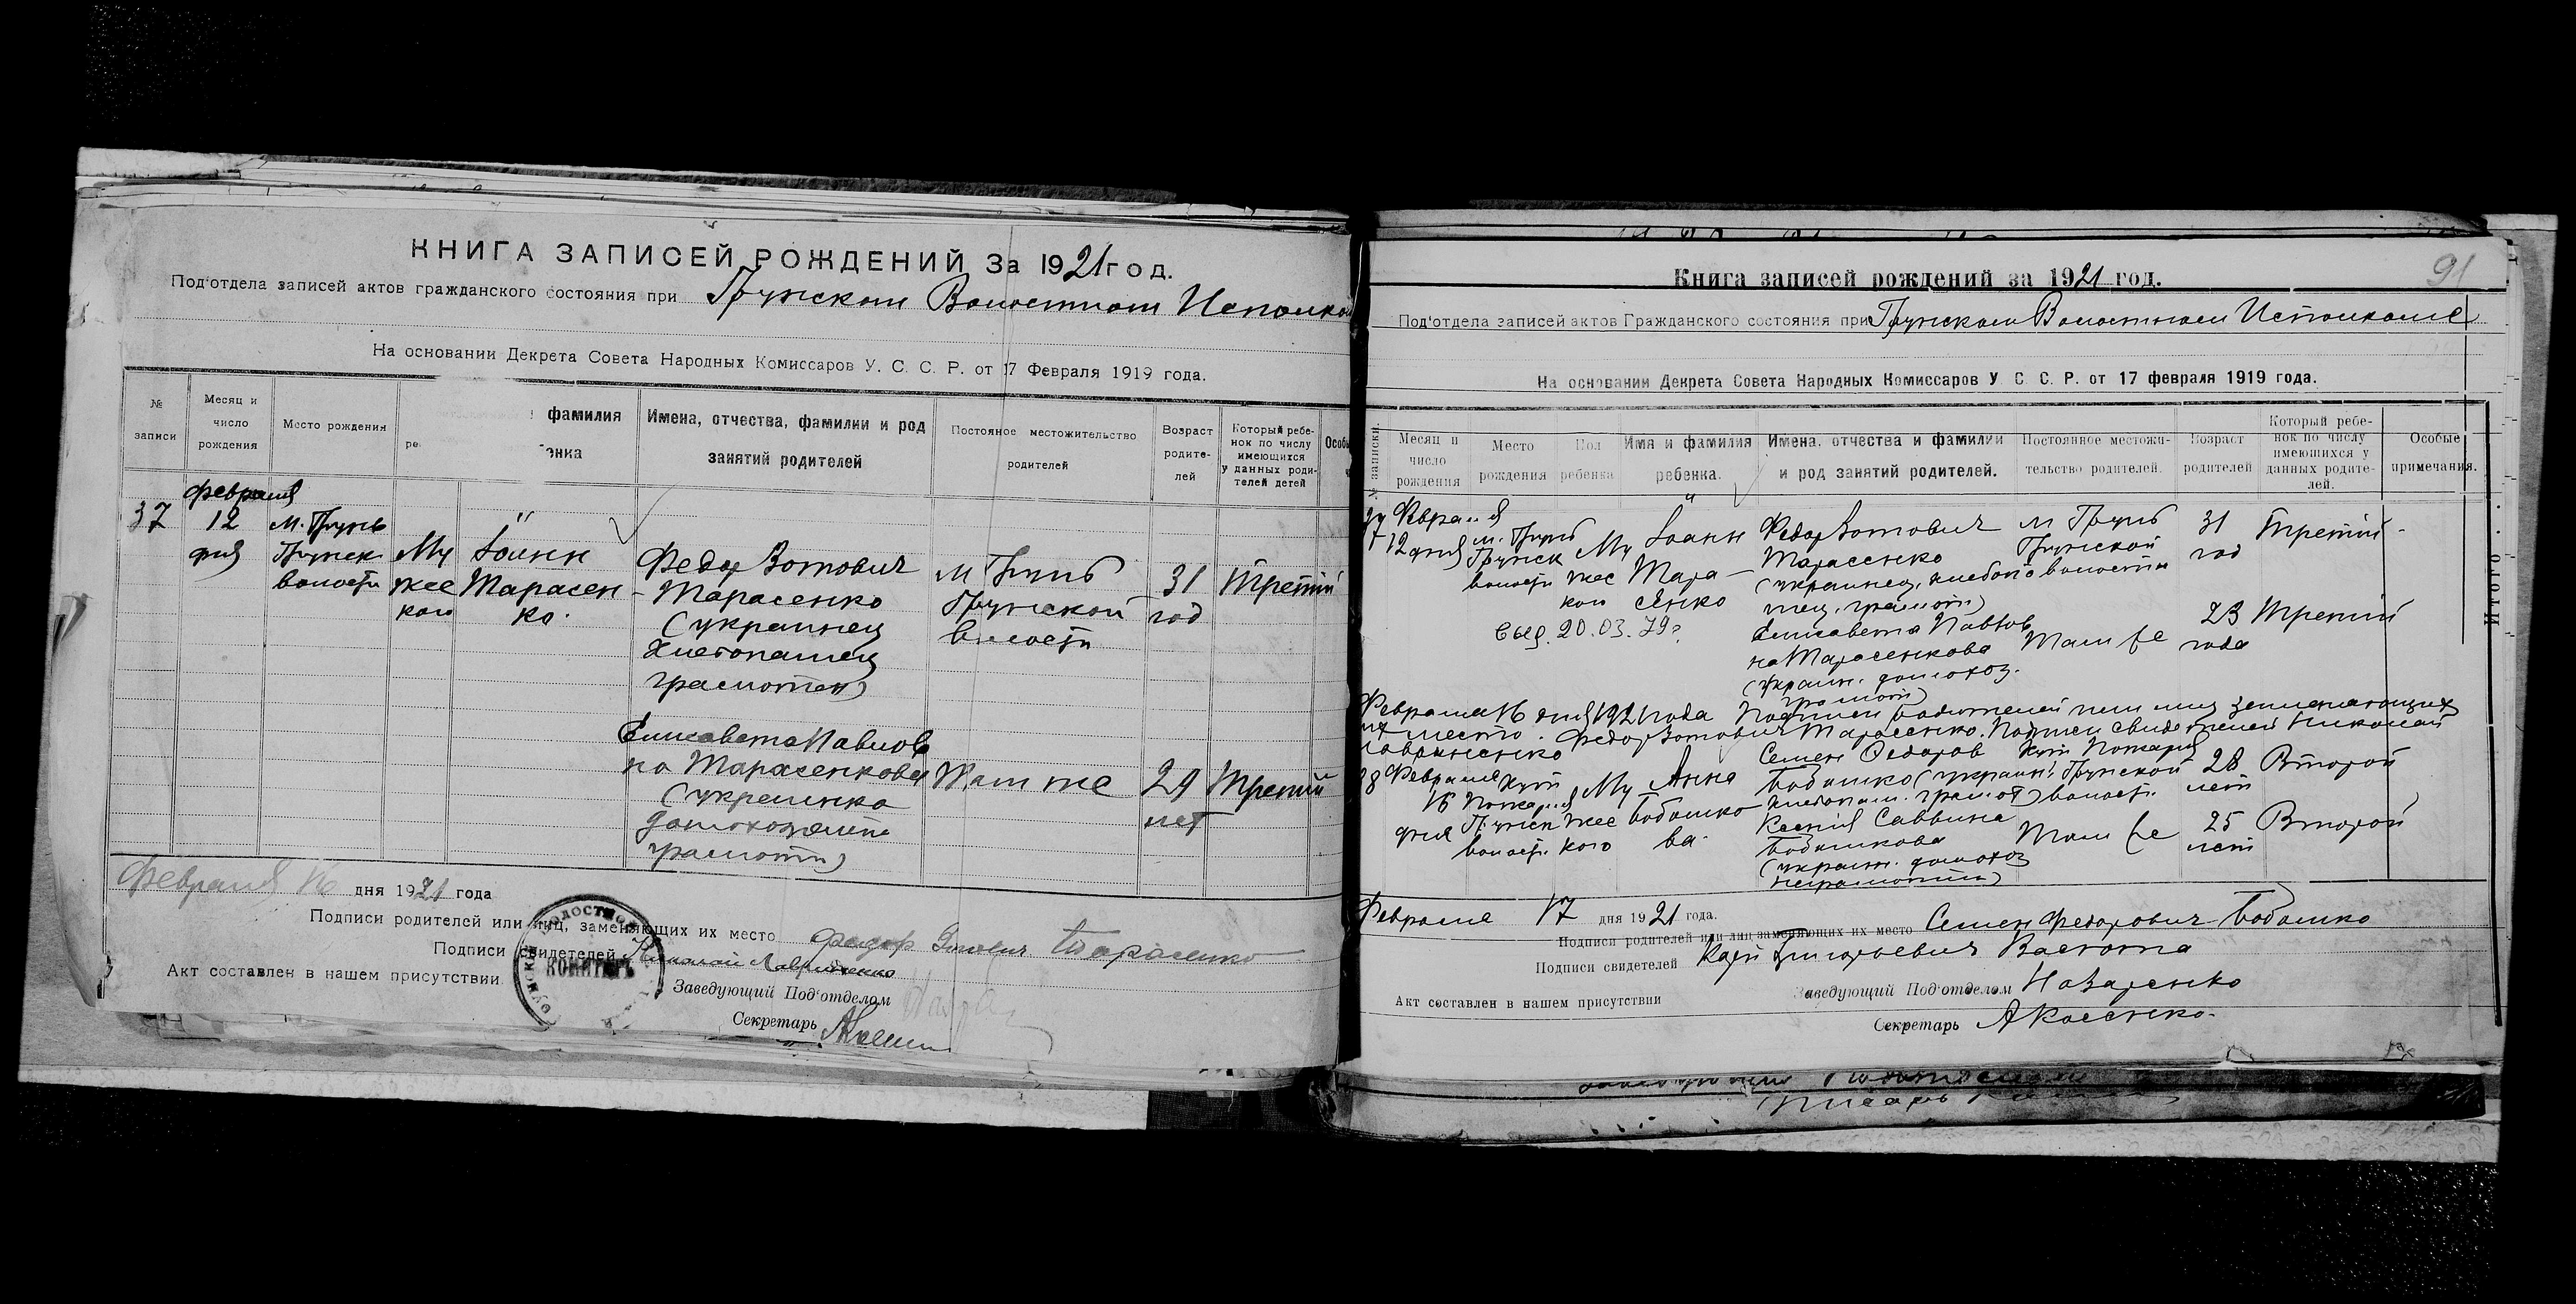 КНИГА ЗАПИСЕЙ РОЖДЕНИЙ За 1921 год.
Под'отдела записей актов гражданского состояния при Грунском Волостном Исполко
На основании Декрета Совета Народных Комиссаров У. С. С. Р. от 17 Февраля 1919 года.
№ записи
Месяц и число рождения
Место рождения
ре
фамилия
енка
Имена, отчества, фамилии и род занятий родителей
Постояное местожительство родителей
Возраст родите- лей
Который ребе- нок по числу имеющихся у данных роди- телей детей
Особы
37
февраля
12
дня
м. Грунь
Грунск
волости
Му
жес
кои
Іоанн
Тарасен
ко.
Федор Зотович
Тарасенко
(украинец
хлебопашец
грамотен)
м Грунь
Грунской
волости
31
год
третий
Елисавета Павлов
на Тарасенкова
(украинка
домохозяйка
грамотн)
Там же
29
лет
третий
Февраля 16 дня 1921 года
Подписи родителей или лиц, заменяющих их место Федор Зотович Тарасенко
Подписи свидетелей Николай Лавриненко
Акт составлен в нашем присутствии
КОМИТЕТЪ
Заведующий Под'отделом
Секретарь
91
Книга записей рождений за 1921 год.
Под'отдела записей актов Гражданского состояния при Грунском Волостном Исполкоме
На основании Декрета Совета Народных Комиссаров У. С. С. Р. от 17 февраля 1919 года.
№ записи.
Месяц и число рождения
Место рождения
Пол ребенка
Имя и фамилия ребенка.
Имена, отчества и фамилии и род занятий родителей.
Постоянное местожи- тельство родителей.
Возраст родителей
Который ребе- нок по числу имеющихся у данных родите- лей.
Особые примечания.
Итого
37
Февраля
12 дня
м. Грунь
Грунск
волости
Му
жес
кои
Іоанн
Тара-
сенко
Федор Зотович
Тарасенко
(украинец, хлебопа
шец, грамот)
м Грунь
Грунской
волости
31
год
третий
20.03.79
Елисавета Павлов
на Тарасенкова
(украин. домохоз.
грамот)
Там же
23
года
третий
Февраля 16 дня 1921 года Подписи родителей или лиц заменяющих
их место. Федор Зотович Тарасенко. Подписи свидетелей Николай
Лавриненко
38
Февраля
16
дня
хут
Грунск
волост.
Му
жес
кого
Анна
Бобошко
ва.
Семен Федоров
Бобошко (украин.
хлебопаш. грамот)
хут
Грунской
волост.
28
лет
Второй
Ксения Саввина
Бобошкова
(украин. домохоз
неграмотн)
Там же
25
лет
Второй
Февраля 17 дня 1921 года.
Подписи родителей или лиц заменяющих их место Семен Федорович Бобошко
Подписи свидетелей Григорьевич
Акт составлен в нашем присутствии
Заведующий Под'отделом Назаренко
Секретарь